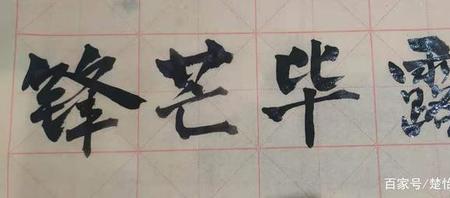 锋芒毕露
百家号/楚怡